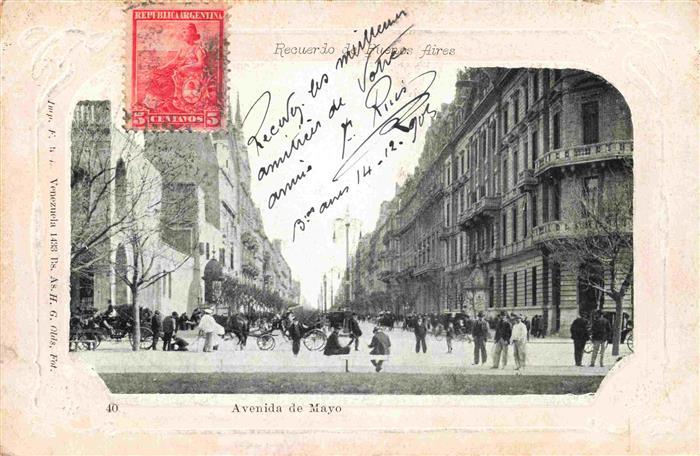 REPUBLICA ARGENTINA
5 CENTAVOS 5
Recuerdo de Buenos Aires
Recevez les meilleures
amitiés de Votre
amie
Bues aires 14-12-903
Venezuela 1433 Bs. As. H. G. Olds, Fot.
40 Avenida de Mayo